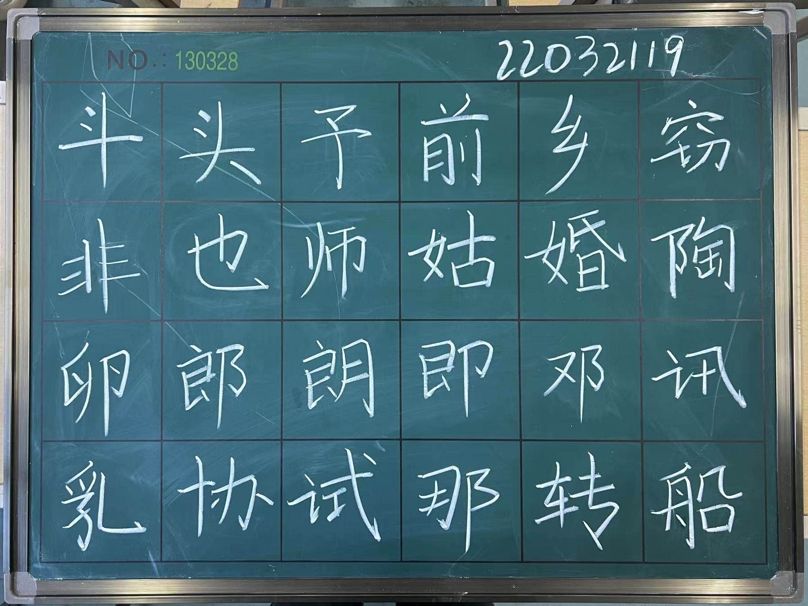 NO.: 130328 22032119
斗头予前乡窃
非也师姑婚陶
卵郎朗即邓讯
乳协试那转船